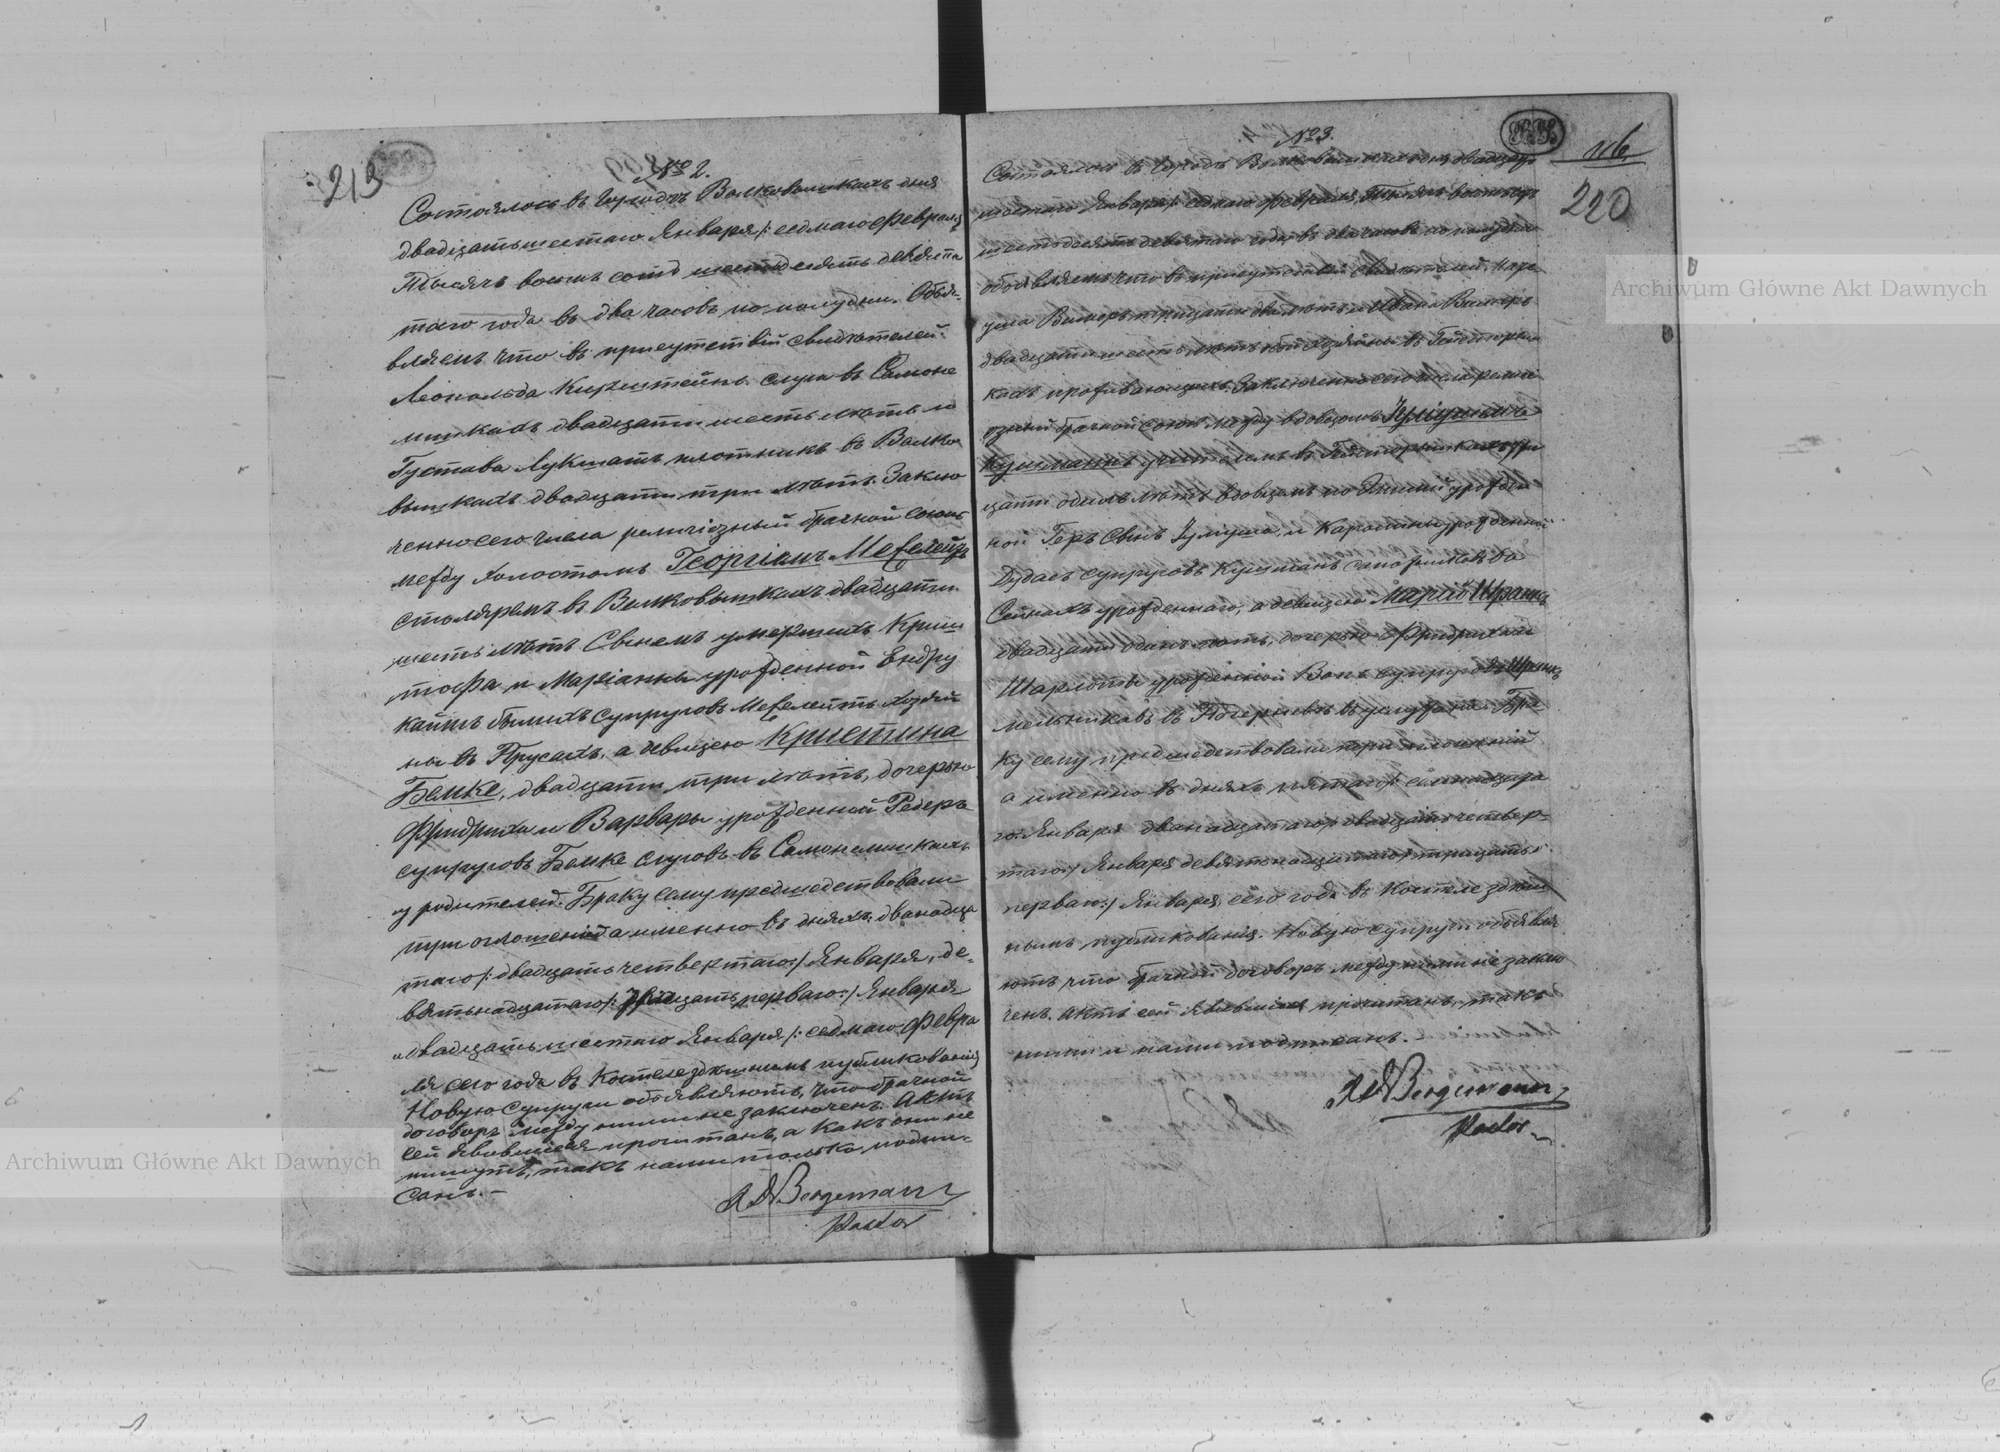 213
№ 2.
Состоялось въ городѣ Волковышкахъ дня
двадцатьшестаго Января /: седмаго Февраля
Тысячъ восемь сотъ шестьдесять девята
таго года въ два часовъ по полудни. Объя-
вляемъ что въ присутствій свидѣтелей:
Леопольда Кирштейнъ слуги въ Самоне
лишкахъ двадцати шесть лѣтъ и
Густава Лукшатъ плотникъ въ Волко
вышкахъ двадцати три лѣтъ. Заклю
ченно сего числа религіозный брачной союзъ
между холостомъ Георгіемъ
столяремъ въ Волковышкахъ двадцати
шесть лѣтъ Сынемъ умершихъ Криш
тофа и Маріанны урожденной Ендру
кайтъ бывшихъ супруговъ хозяй
ны въ Прусахъ, а девицею Кристина
Бемке, двадцати три лѣтъ, дочерью
Фридриха и Варвары урожденной Редеръ
супруговъ Бемке слуговъ въ Самонелишкахъ
у родителей. Браку сему предшедствовали
три оглошенія а именно въ дняхъ: дванадца
таго /: двадцать четвертаго :/ Января, де-
вятьнадцатаго /: тридцать перваго :/ Января
и двадцать шестаго Января /: седмаго Февра
ля сего года въ Костеле здешнымъ публикованія
Новую Супруги объявляютъ, что брачной
договоръ между ними не заключенъ. Актъ
сей явовшіеся прочитанъ, а какъ они не
пишутъ, такъ нами только подпи-
санъ.—
Bergemann
Pastor
№ 3.
116
220
Состоялось въ городѣ Волковышкахъ дня двадцать
шестаго Января /: седмаго Февраля Тысячъ восемьсотъ
шестьдесять девятаго года въ два часовъ по полудни
объявляемъ что въ присутствій свидѣтелей
двадцати шесть лѣтъ хозяины въ
кахъ проживающихъ. Заключенно сего числа религі
озный брачной союзъ между вдовцомъ Юліушемъ
учителемъ въ три
цати одинъ лѣтъ вдовцемъ по урожден
ной Геръ Сынъ Юліуша и Каролины урожденной
супруговъ
урожденного, а девицею Маріею Шранкъ
двадцати одинъ лѣтъ, дочерью Фридриха и
Шарлоты урожденной супруговъ Шранкъ
мельниковъ въ Бра
ку сему предшедствовали три оглошеній
а именно въ дняхъ пятаго /: семнадцата
го :/ Января дванадцатаго /: двадцать четвер-
таго :/ Января девятьнадцатаго /: тридцать
перваго :/ Января сего года въ Костеле здеш
нымъ публикованія. Новую супруги объявля
ютъ что брачной договоръ между ними не заклю
ченъ. Актъ сей явовшіеся прочитанъ, такъ
ними и нами подписанъ.—
Bergemann
Pastor
Archiwum Główne Akt Dawnych
Archiwum Główne Akt Dawnych